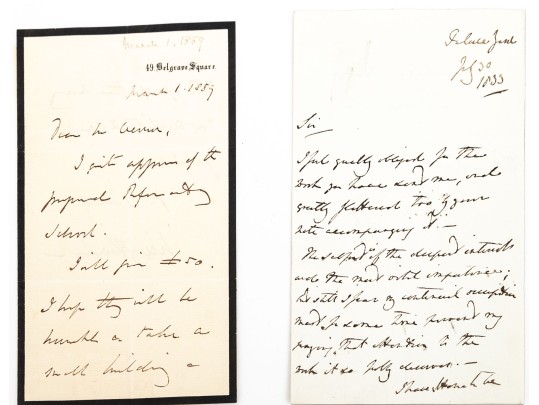 March 1, 1859
49 Belgrave Square
March 1. 1859
Dear Mr
I quite approve of the
proposed Reformatory
School.
I will give £50.
I hope they will be
humble & take a
small building &
July 30
1833
Sir
I feel greatly obliged for the
work you have send me, and
greatly flattered too by your
note accompanying it. —
The subject is of the deepest interest
and the most vital importance;
but I fear my continual occupation
must for some time prevent my
paying that attention to the
work it so fully deserves. —
I have the honor to be